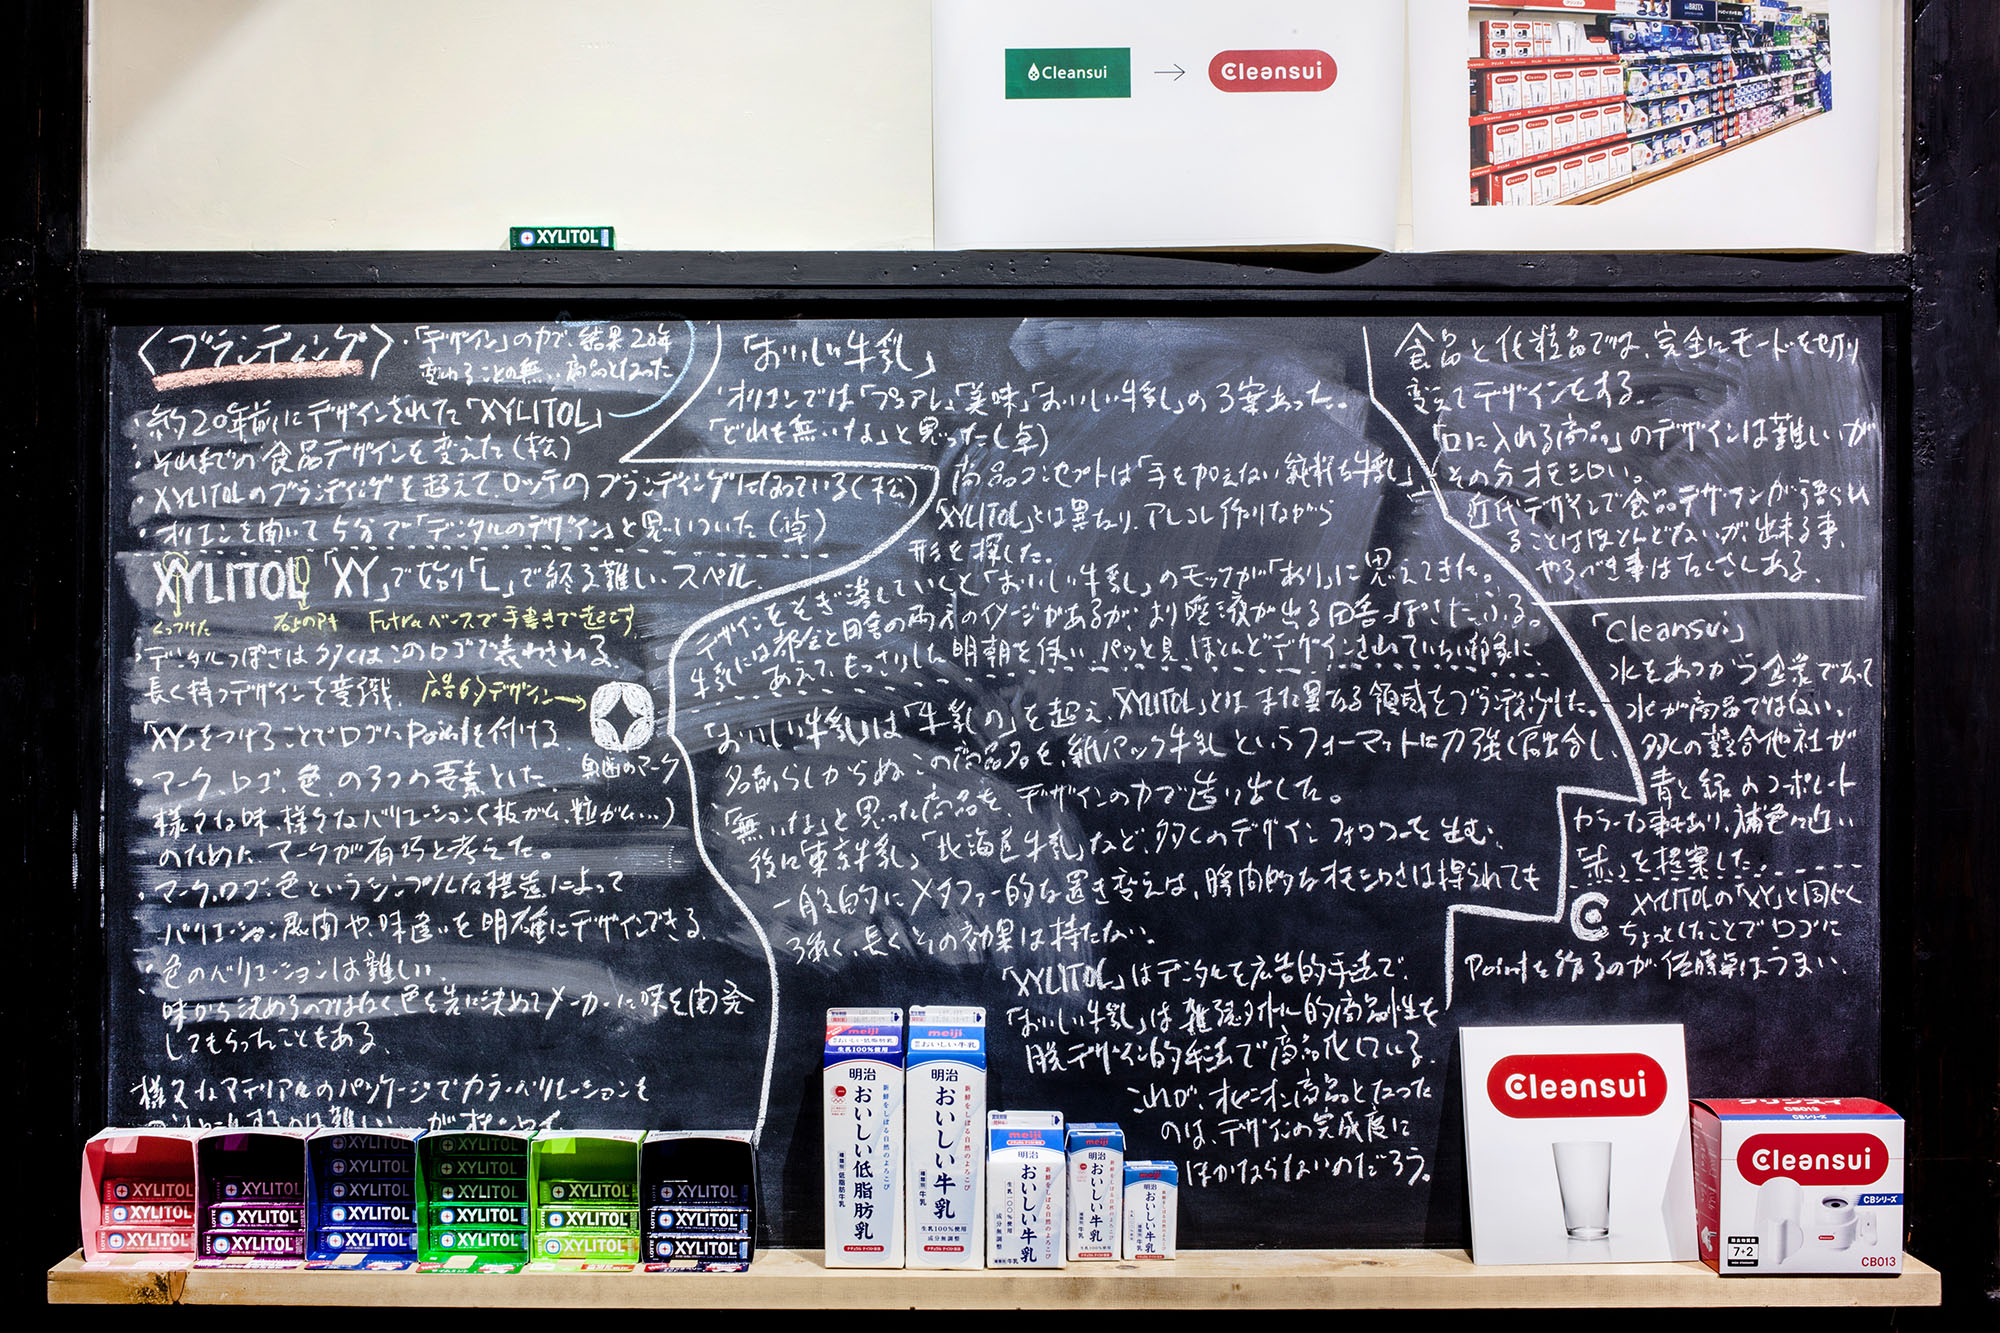 Cleansui → Cleansui
BRITA
XYLITOL
〈ブランディング〉
・「デザイン」の力で、結果20年
変わることの無い商品となった
・約20年前にデザインされた「XYLITOL」
・それまでの食品デザインを変えた(松)
・XYLITOLのブランディングを超えて、ロッテのブランディングになっている(松)
・オリエンを聞いて5分で「デンタルのデザイン」と思いついた(卓)
XYLITOL 「XY」で始り「L」で終る難しいスペル
くっつけた 右上のアキ Futuraベースで手書きで起こす
・デンタルっぽさは多くはこのロゴで表わされる。
長く持つデザインを意識. 広告的デザイン→
「XY」をつけることでロゴにPointを付ける.
奥歯のマーク
・マーク、ロゴ、色、の3つの要素とした
様々な味、様々なバリエーション(板ガム、粒ガム…)
のために、マークが有巧と考えた。
・マーク、ロゴ、色というシンプルな構造によって
バリエーション展開や、味違いを明確にデザインできる.
・色のバリエーションは難しい.
味から決めるのではなく、色を先に決めてメーカーに味を開発
してもらったこともある.
様々なマテリアルのパッケージでカラーバリエーションを
「おいしい牛乳」
・オリエンでは「ピュアレ」「美味」「おいしい牛乳」の3案あった。
「どれも無いな」と思った(卓)
商品コンセプトは「手を加えない純粋な牛乳」
「XYLITOL」とは異なり、アレコレ作りながら
形を探した。
デザインをそぎ落していくと「おいしい牛乳」のモックが「あり」に思えてきた。
牛乳には都会と田舎の両方のイメージがあるが、より唾液が出る田舎っぽさにふる。
あえてもっさりした明朝を使い、パッと見、ほとんどデザインされていない印象に
「おいしい牛乳」は「牛乳の」を超え、「XYLITOL」とはまた異なる領域をブランディングした。
名前らしからぬこの商品名を、紙パック牛乳というフォーマットに力強く合し、
「無いな」と思った商品を、デザインの力で造り出した。
後に「東京牛乳」「北海道牛乳」など、多くのデザインフォロワーを生む、
一般的にメタファー的な置き変えは、瞬間的なオモシロさは得られても
強く、長くその効果は持たない。
「XYLITOL」はデンタルを広告的手法で、
「おいしい牛乳」は 的商品性を
脱デザイン的手法で商品化している.
これが、オピニオン商品となった
のは、デザインの完成度に
ほかならないのだろう。
食品と化粧品では、完全にモードを切り
変えてデザインをする.
「口に入れる商品」のデザインは難しいが
その分オモシロい。
近代デザインで食品デザインが語られ
ることはほとんどないが、出来る事、
やるべき事はたくさんある.
「Cleansui」
水をあつかう企業であって
水が商品ではない.
多くの競合他社が
青と緑のコーポレート
カラーな事もあり、補色に近い
「赤」を提案した.
XYLITOLの「XY」と同じく
ちょっとしたことでロゴに
Pointを作るのが、佐藤卓はうまい.
XYLITOL
XYLITOL
XYLITOL
XYLITOL
XYLITOL
XYLITOL
LOTTE
meiji
おいしい低脂肪乳
生乳100%使用
明治
おいしい低脂肪乳
種類別 低脂肪牛乳
meiji
おいしい牛乳
明治
おいしい牛乳
新鮮をしぼる自然のよろこび
種類別 牛乳
生乳100%使用
成分無調整
meiji
明治
おいしい牛乳
成分無調整
meiji
明治
おいしい牛乳
meiji
明治
おいしい牛乳
Cleansui
クリンスイ
CB013
CBシリーズ
Cleansui
CBシリーズ
7+2
CB013